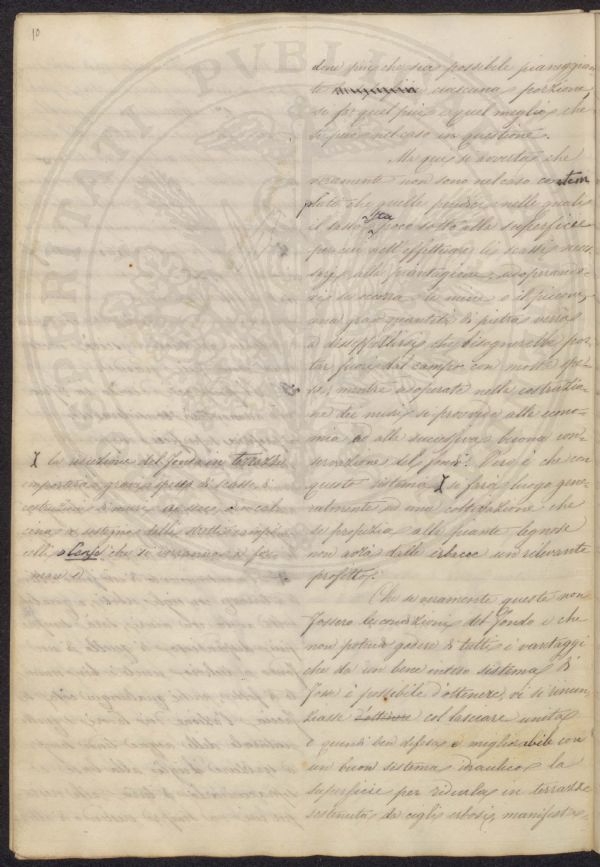 10
dere più che sia possibile pianeggian-
te ciascuna porzione
si fa quel più e quel meglio che
si può nel caso in questione.
Ma qui si avverta che
veramente non sono nel caso contem
plato che quelle pendici nelle quali
il sasso stia poco sotto alla superficie
per cui nell'effettuare li scassi neces
sarj alla piantagione, adoprando-
vi se occorra la mina e il piccone,
una gran quantità di pietra verrà
a disseppellirsi che bisognerebbe por-
tar fuori dal campo con molta spe-
sa, mentre adoperata nella costruzio-
ne dei muri si provvede alla econo-
mia ed alla successiva buona con-
servazione del fondo. Vero è che con
questo sistema si farà luogo gene-
ralmente ad una coltivazione che
se profizia alle piante legnose
non avrà dalle erbacee un rilevante
profitto.
Che se veramente queste non
fossero le condizioni del fondo e che
non potendo godere di tutti i vantaggi
che da un bene inteso sistema di
fosse è possibile d'ottenere, vi si rinun
ziasse col lasciare unita
e quindi ben difesa e migliorabile con
un buon sistema idraulico la
superficie per ridurla in terrazze
sostenuta da cigli erbosi, manifesta-
la riduzione del fondo in terrazze
importerà gravi spese di scasso, di
costruzioni di muri a secco, o in calcina
a sostegno delle
che si verranno a for
mare